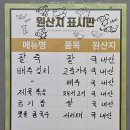 원산지 표시판
메뉴명 품목 원산지
쌀 국내산
배추김치 고춧가루 국내산
배추 국내산
제육볶음 돼지고기 국내산
공기밥 쌀 국내산
국내산